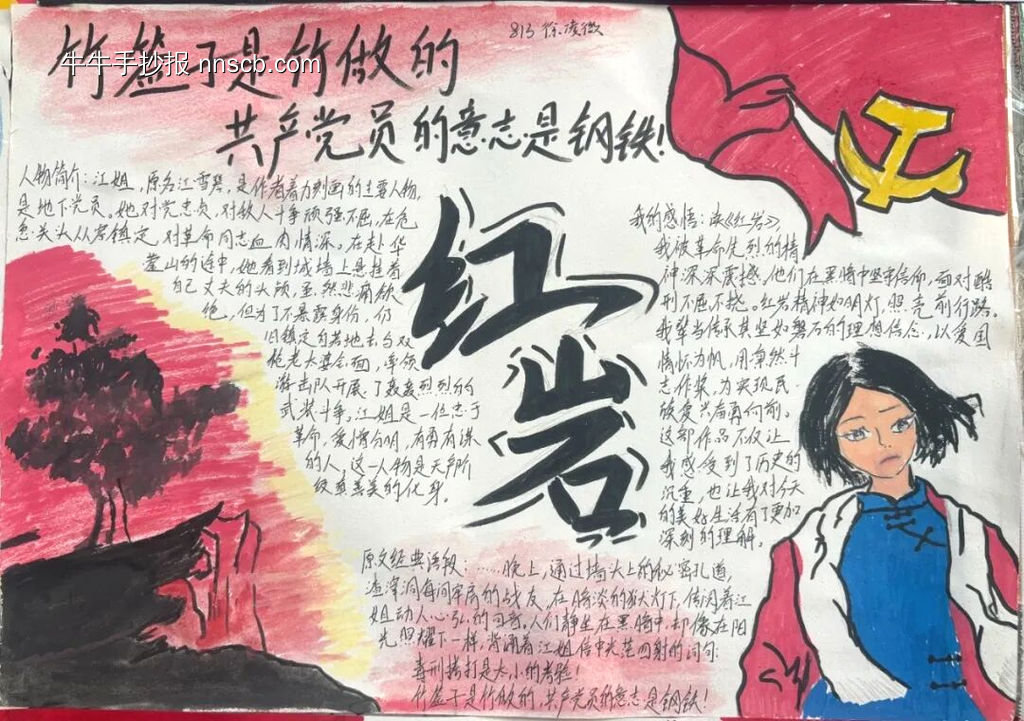 813 徐凌微
竹签子是竹做的
牛牛手抄报 nnscb.com
共产党员的意志是钢铁!
人物简介:江姐,原名江雪琴,是作者着力刻画的主要人物,
是地下党员。她对党忠贞,对敌人斗争顽强不屈,在危
急关头从容镇定,对革命同志血肉情深。在赴华
蓥山的途中,她看到城墙上悬挂着
自己丈夫的头颅,虽然悲痛欲
绝,但为了不暴露身份,仍
旧镇定自若地去与双
枪老太婆会面,率领
游击队开展了轰轰烈烈的
武装斗争,江姐是一位忠于
革命,爱憎分明,有勇有谋
的人,这一人物是无产阶
级至善美的化身。
红岩
我的感悟:读《红岩》,
我被革命先烈的精
神深深震撼。他们在黑暗中坚守信仰,面对酷
刑不屈不挠。红岩精神如明灯,照亮前行路。
我辈当传承其坚如磐石的理想信念,以爱国
情怀为帆,用昂然斗
志作桨,为实现民
族复兴奋勇向前。
这部作品不仅让
我感受到了历史的
沉重,也让我对今天
的美好生活有了更加
深刻的理解。
原文经典语段:……晚上,通过墙头上的秘密孔道,
渣滓洞每间牢房的战友,在暗淡的狱灯下,传阅着江
姐动人心弦的回答。人们静坐在黑暗中,却像在阳
光照耀下一样,背诵着江姐信中光芒四射的词句:
毒刑拷打是太小的考验!
竹签子是竹做的,共产党员的意志是钢铁!